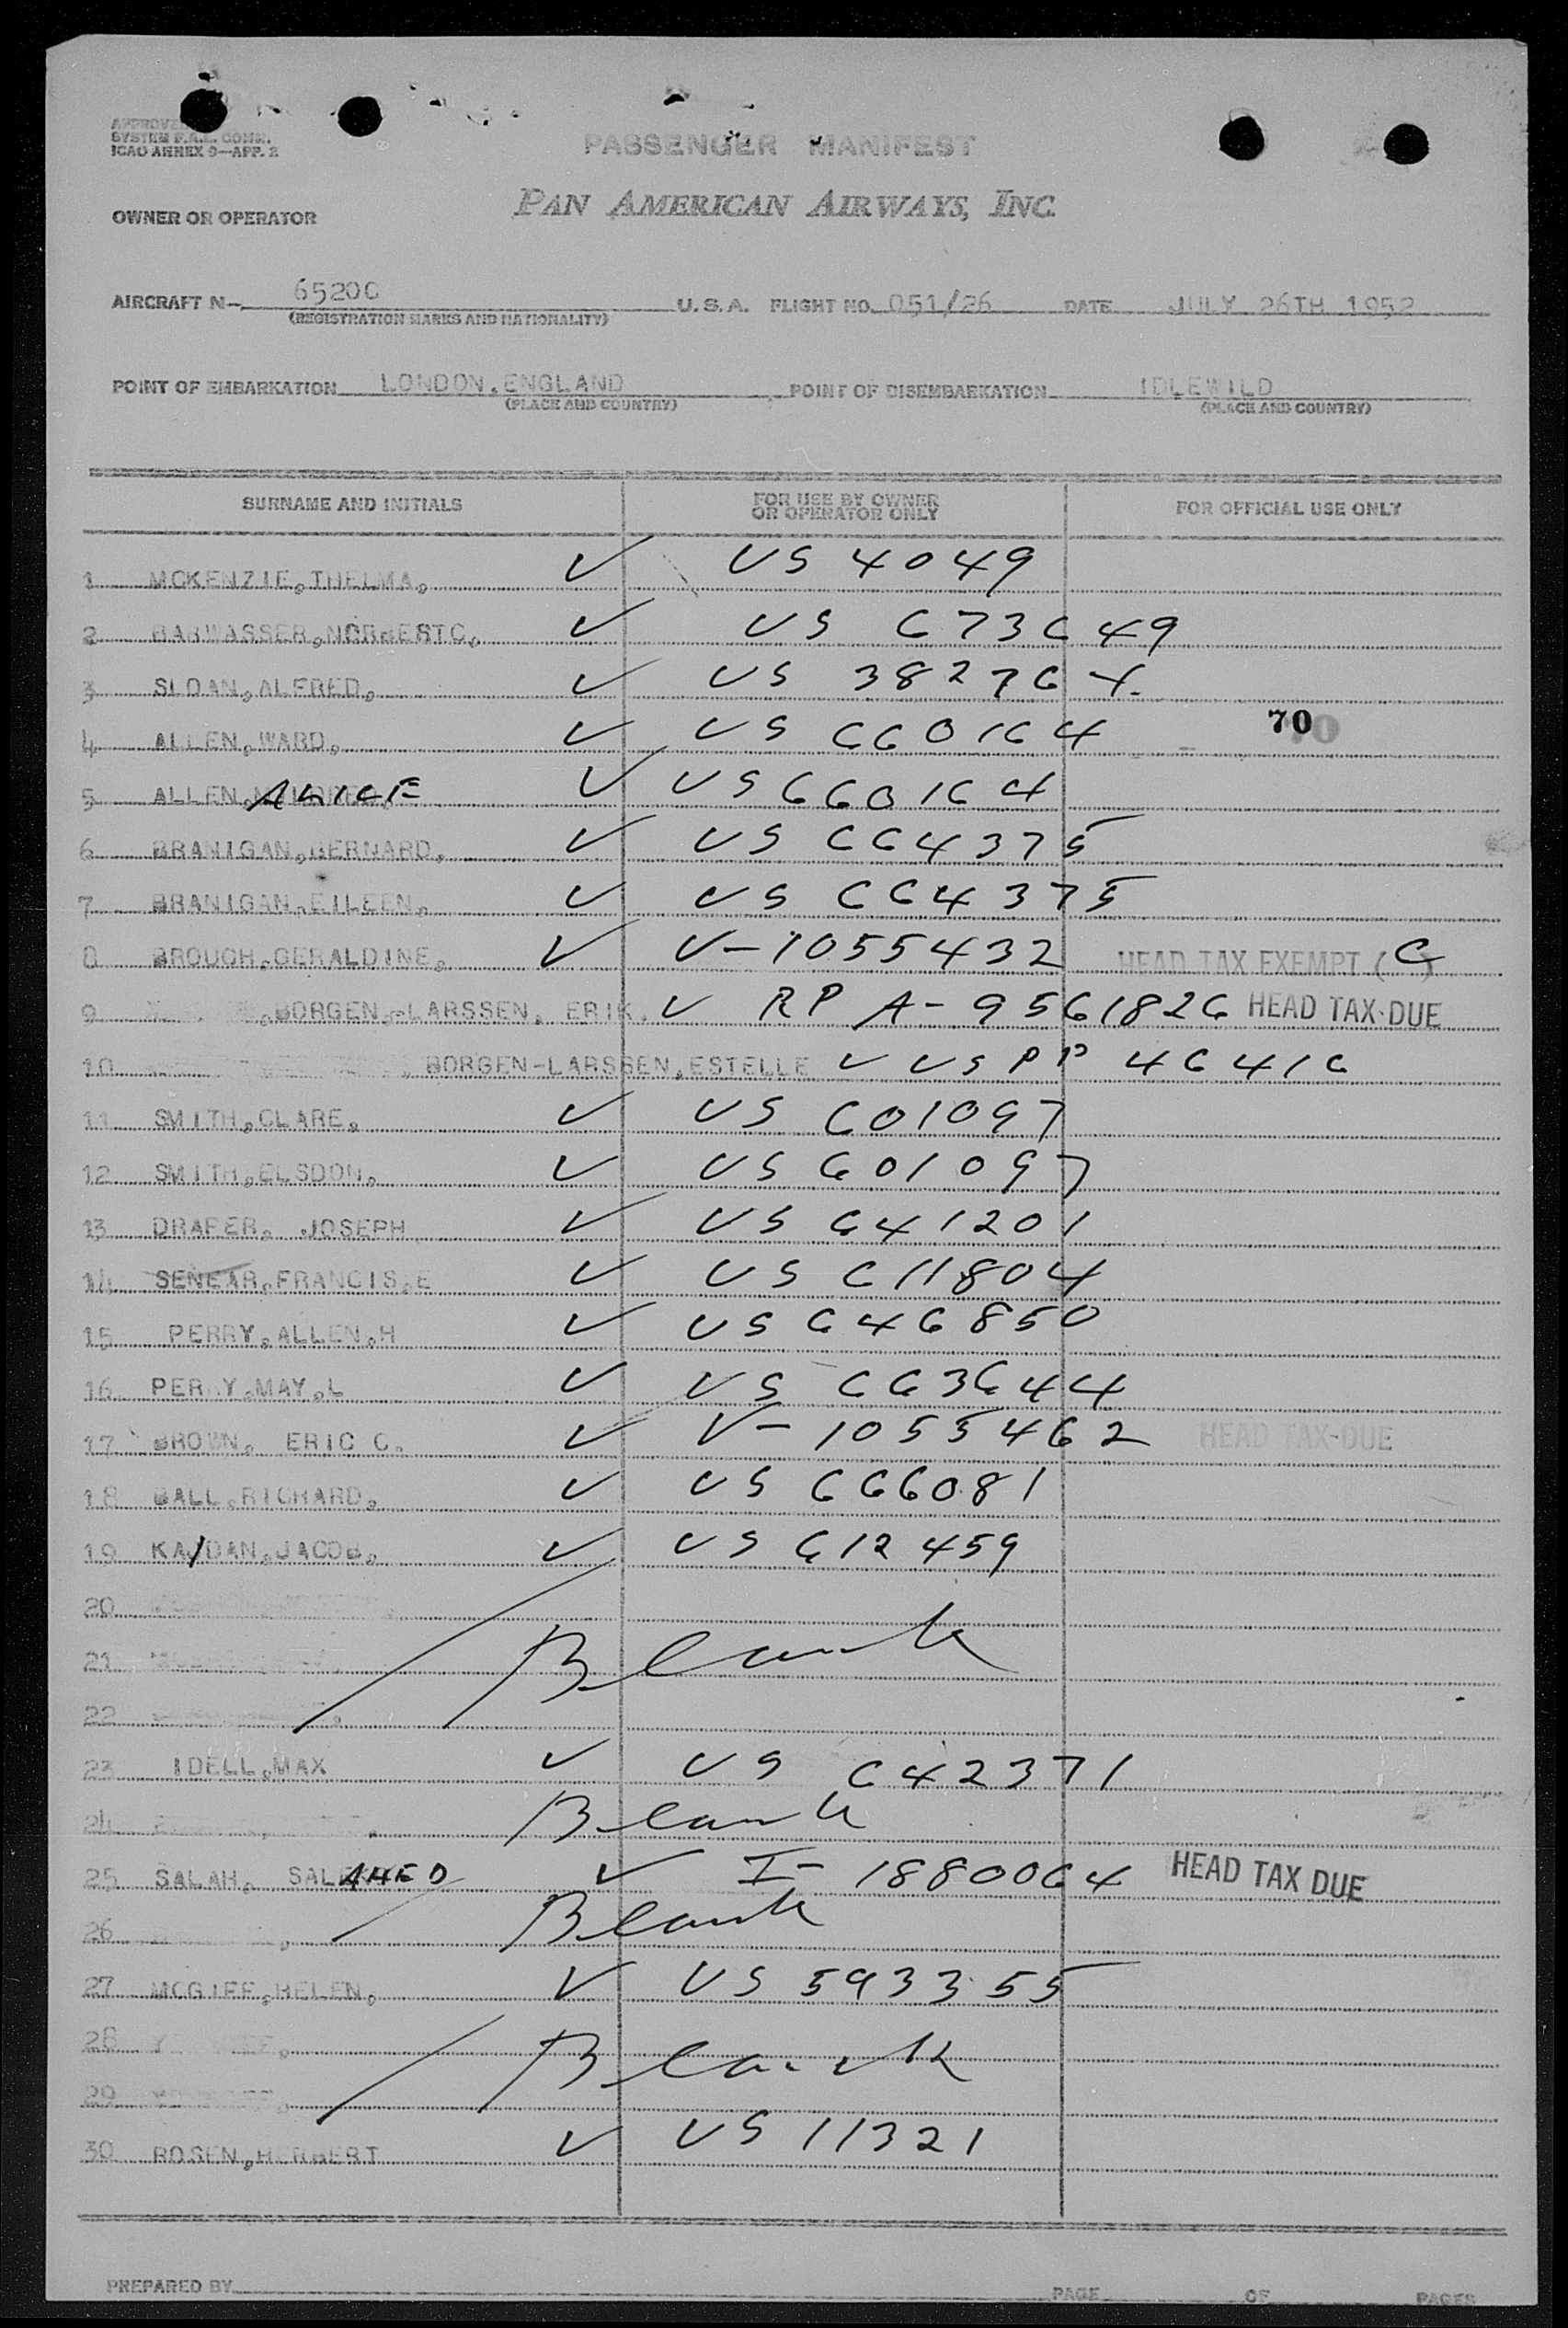 APPROVED
SYSTEM F.A.L. COMM.
ICAO ANNEX 9—APP. 2
PASSENGER MANIFEST
OWNER OR OPERATOR PAN AMERICAN AIRWAYS, INC.
AIRCRAFT N— 6520C U.S.A. FLIGHT NO. 051/26 DATE JULY 26TH 1952
(REGISTRATION MARKS AND NATIONALITY)
POINT OF EMBARKATION LONDON, ENGLAND POINT OF DISEMBARKATION IDLEWILD
(PLACE AND COUNTRY) (PLACE AND COUNTRY)
SURNAME AND INITIALS FOR USE BY OWNER OR OPERATOR ONLY FOR OFFICIAL USE ONLY
1 MCKENZIE, THELMA, ✓ US 4049
2 BARWASSER, ✓ US 673649
3 SLOAN, ALFRED, ✓ US 38276
4 ALLEN, WARD, ✓ US 660164 70
5 ALLEN, ALICE ✓ US 660164
6 BRANIGAN, BERNARD, ✓ US 664375
7 BRANIGAN, EILEEN, ✓ US 664375
8 BROUGH, GERALDINE, ✓ V-1055432 HEAD TAX EXEMPT (C)
9 BORGEN-LARSSEN, ERIK, ✓ RP A-9561826 HEAD TAX DUE
10 BORGEN-LARSSEN, ESTELLE ✓ US PP 46416
11 SMITH, CLARE, ✓ US 601097
12 SMITH, ELSDON, ✓ US 601097
13 DRAPER, JOSEPH ✓ US 641201
14 SENEAR, FRANCIS, E ✓ US 611804
15 PERRY, ALLEN, H ✓ US 646850
16 PERRY, MAY, L ✓ US 663644
17 BROWN, ERIC C. ✓ V-1055462 HEAD TAX DUE
18 BALL, RICHARD, ✓ US 666081
19 KA/DAN, JACOB, ✓ US 612459
20
21 Blank
22
23 IDELL, MAX ✓ US 642371
24 Blank
25 SALAH, SALAHED ✓ I-1880064 HEAD TAX DUE
26 Blank
27 MCGIFF, HELEN, ✓ US 593355
28 Blank
29
30 ROSEN, HERBERT ✓ US 11321
PREPARED BY PAGE OF PAGES